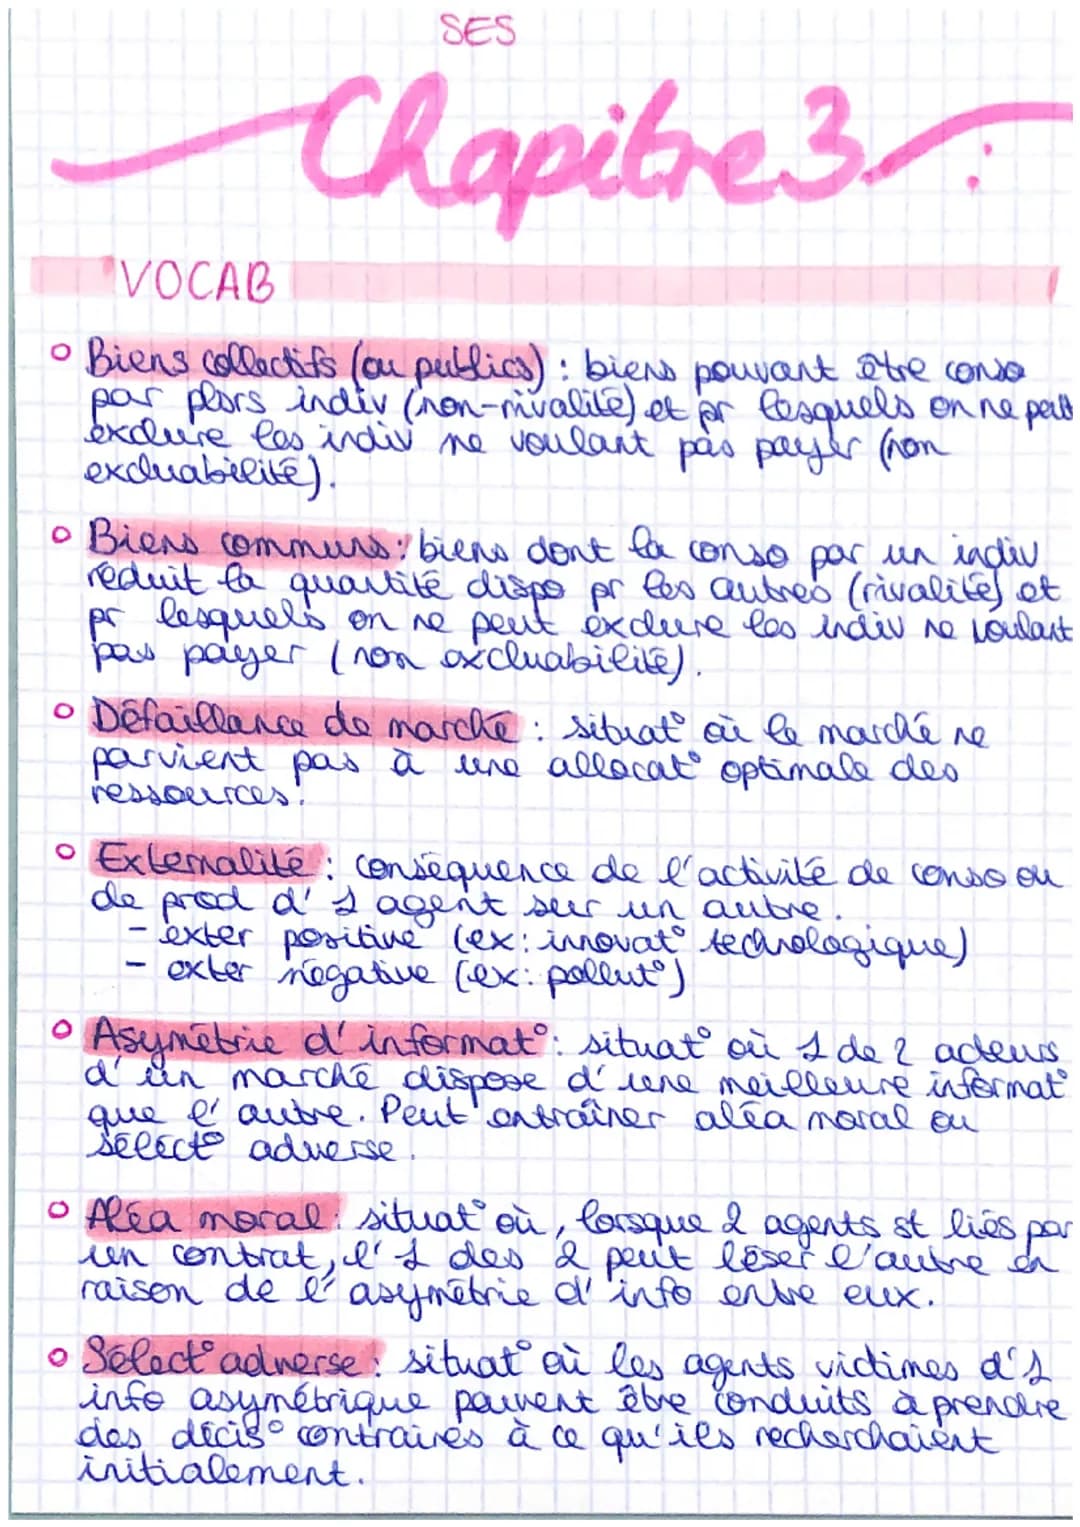 SES
Chapitre 3 :
VOCAB
Biens collectifs (ou publics) : biens pouvant être conso
par plsrs indiv (non-rivalité) et pr lesquels on ne peut
exclure les indiv ne voulant pas payer (non
excluabilité).
Biens communs : biens dont la conso par un indiv
réduit la quantité dispo pr les autres (rivalité) et
pr lesquels on ne peut exclure les indiv ne voulant
pas payer (non excluabilité).
Défaillance de marché : situat° où le marché ne
parvient pas à une allocat° optimale des
ressources.
Externalité : conséquence de l'activité de conso ou
de prod d'1 agent sur un autre.
- exter positive (ex: innovat° technologique)
- exter négative (ex: pollut°)
Asymétrie d'informat° : situat° où 1 de 2 acteurs
d'un marché dispose d'une meilleure informat°
que l'autre. Peut entraîner aléa moral ou
sélect° adverse.
Aléa moral : situat° où, lorsque 2 agents st liés par
un contrat, l'1 des 2 peut léser l'autre en
raison de l'asymétrie d'info entre eux.
Sélect° adverse : situat° où les agents victimes d'1
info asymétrique peuvent être conduits à prendre
des décis° contraires à ce qu'ils recherchaient
initialement.